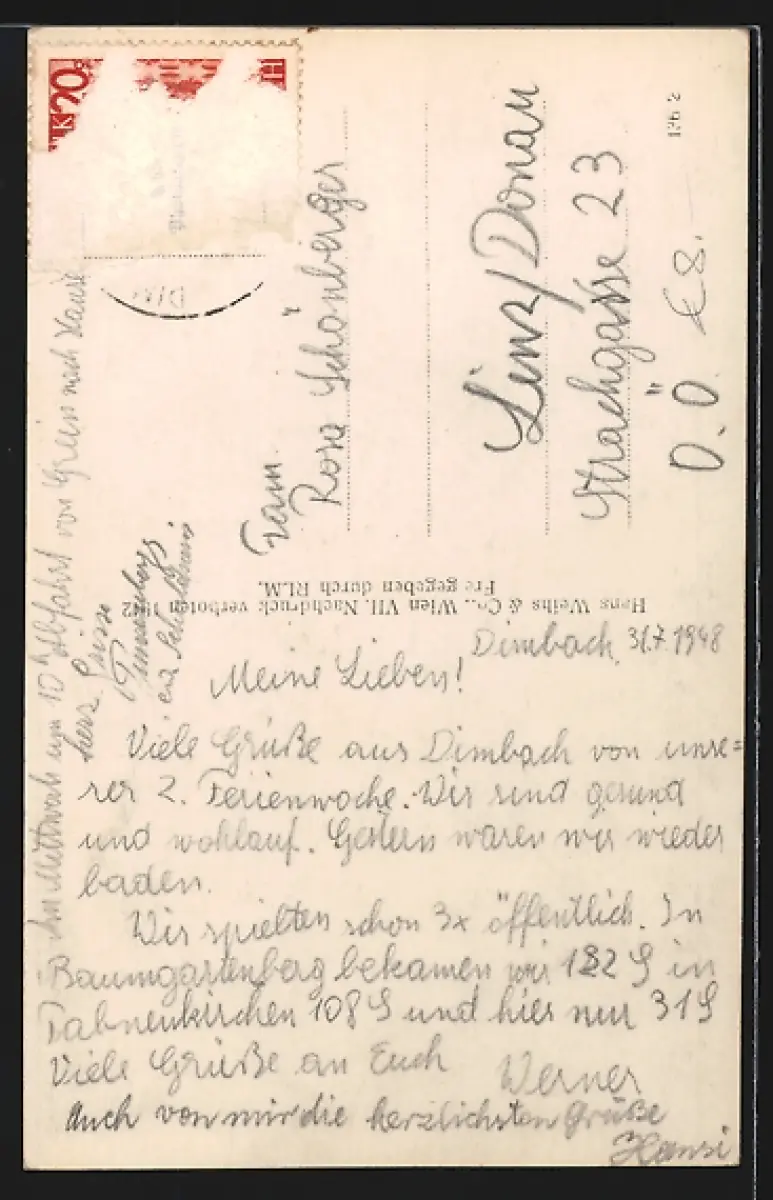 Dimbach, 31.7.1948
Meine Lieben!
Viele Grüße aus Dimbach von unse=
rer 2. Ferienwoche. Wir sind gesund
und wohlauf. Gestern waren wir wieder
baden.
Wir spielten schon 3x öffentlich. In
Baumgartenberg bekamen wir 182 S in
Pabneukirchen 108 S und hier nur 31 S
Viele Grüße an Euch
Werner
Auch von mir die herzlichsten Grüße
Hansi
Am Mittwoch um 10h Abfahrt von Grein nach Hause
herz. Grüsse
Hans Weihs & Co., Wien VII. Nachdruck verboten 1942
Freigegeben durch RLM.
Frau
Rosa Schönberger
Linz/Donau
Strachgasse 23
O.Ö.
136 2
20